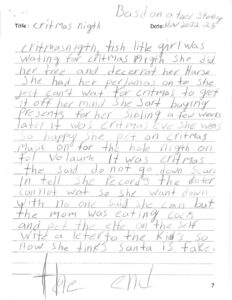 Basd on a tair storey
Title: critmas nigth Date: Nov 2022 23
critmasnigth, tish little gnrl was
wating for critmas nigth She did
her tree and decorrat her Harse
She had her perjumas on to She
jest can't wat for critmas to get
it off her mind She sart buying
Presents for her Sibling a few weeks
later it was critmas Eve she was
So happy She pet on critmas
music on for the hole nigth on
fol volaume It was critmas
the said do not go down Scars
In tell She records the
not wat so she want down
with no one said she can but
the mom was eating cocis
and pet the elfe on the self
Wite a leter to the kid's so
Now She tinks santa is fake.
the end
7